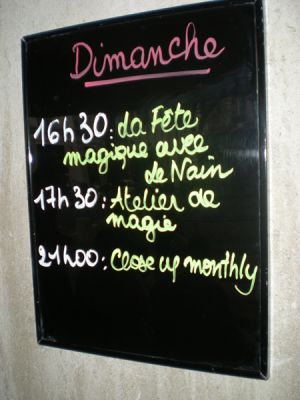 Dimanche
16h30: la Fête
magique avec
le Nain
17h30: Atelier de
magie
21h00: Close up monthly